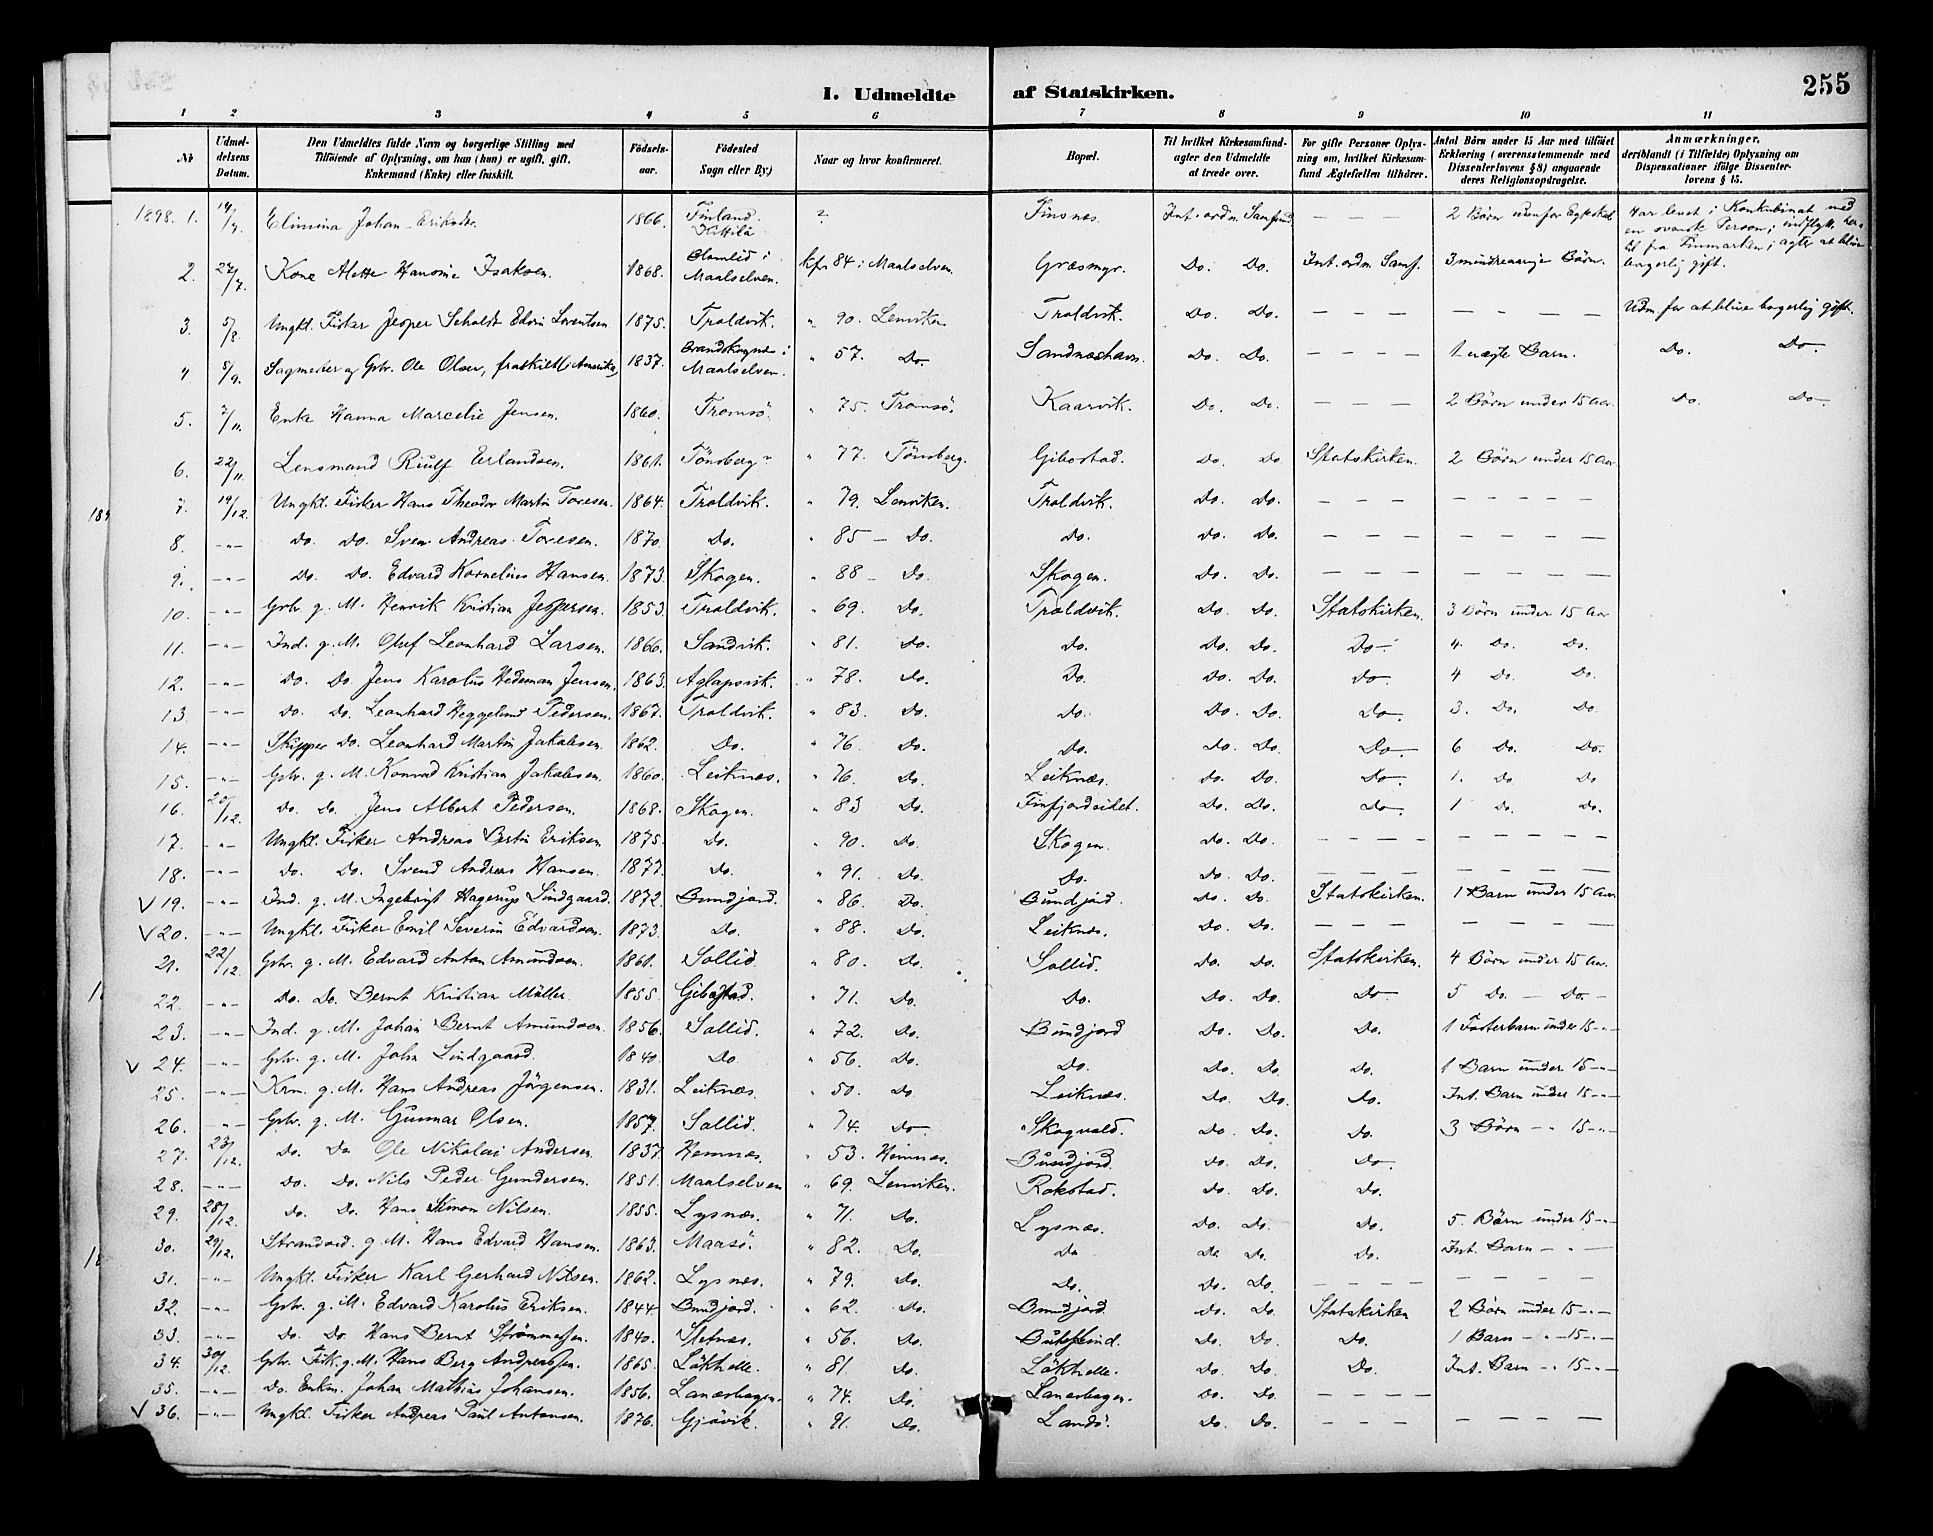 255
I. Udmeldte af Statskirken.
1 2 3 4 5 6 7 8 9 10 11
№
Udmeldelsens Datum.
Den Udmeldtes fulde Navn og borgerlige Stilling med Tilføiende af Oplysning, om han (hun) er ugift, gift, Enkemand (Enke) eller fraskilt.
Fødselsaar.
Fødested Sogn eller By.)
Naar og hvor konfirmeret.
Bopæl.
Til hvilket Kirkesamfund agter den Udmeldte at træde over.
For gifte Personer Oplysning om, hvilket Kirkesamfund Ægtefællen tilhører.
Antal Børn under 15 Aar med tilføiet Erklæring (overensstemmende med Dissenterlovens § 8) angaaende deres Religionsopdragelse.
Anmærkninger, deriblandt (i Tilfælde) Oplysning om Dispensationer ifølge Dissenterlovens § 15.
1898. 1. Elimina Johan 1866. Finland. Kittilä ? Finsnes. Int. ordn. Samfund — — — 2 Børn udenfor Egteskab Har levet i Konkubinat med en svensk Person; indflytt. hertil fra Finmarken; agter at blive borgerlig gift.
2. 27/7. Kone Alette Hansine Isaksen. 1868. Olamlid i Maalselven. kfr 84 i Maalselven Græsmyr. Do. Do. Int. ordn. Samf. 3 mindreaarige Børn.
3. 5/8. Ungkl. Fisker Jesper Seholdt Edvin Lorentsen 1875. Troldvik. " 90. Lenviken Troldvik. Do. Do. — — — — — — — — — Udm for at blive borgerlig gift.
4 8/9. Sagmester og Gbr. Ole Olsen, fraskilt (i Amerika) 1837. Brandskognes i Maalselven. " 57. Do. Sandneshavn. Do. Do. — — — — 1 uægte Barn. Do. Do.
5. 7/11. Enke Hanna Marcelie Jensen. 1860. Tromsö. " 75. Tromsö. Kaarvik. Do. Do. — — — — 2 Børn under 15 Aar. Do. Do.
6. 22/11. Lensmand Riulf Erlandsen. 1861. Tönsberg? " 77. Tönsberg. Gibostad. Do. Do Statskirken. 2 Børn under 15 Aar.
7. 19/12. Ungkl. Fisker Hans Theodor Martin Toresen. 1864. Troldvik. " 79. Lenviken. Troldvik. Do. Do. — — — — — — — — —
8. —"— Do. Do. Sven Andreas Toresen. 1870. Do. " 85 — Do. Do. Do. Do. — — — — — — — — —
9. —"— Do. Do. Edvard Kornelius Hansen. 1873. Skogen. " 88 — Do. Skogen. Do. Do. — — — — — — — — —
10. —"— Gbr. g. M. Henrik Kristian Jespersen. 1853. Troldvik. " 69. Do. Troldvik. Do. Do. Statskirken. 3 Børn under 15 Aar
11. —"— Ind. g. M. Oluf Leonhard Larsen. 1866. Sandvik. " 81. Do. Do. Do. Do. Do. 4. Do. Do.
12. —"— Do. Do. Jens Karolus Hedeman Jensen. 1863. Aglapsvik. " 78. Do. Do. Do. Do. Do. 4 Do. Do.
13. —"— Do. Do. Leonhard Heggelund Pedersen. 1867. Troldvik. " 83. Do. Do. Do. Do. Do. 3. Do. Do.
14. —"— Skipper Do. Leonhard Martin Jakobsen. 1862. Do. " 76. Do. Do. Do. Do. Do. 6 Do. Do.
15. —"— Gbr. g. M. Konrad Kristian Jakobsen. 1860. Leiknes. " 76. Do. Leiknes. Do. Do. Do. 1. Do Do
16. 20/12. Do. Do. Jens Albert Pedersen. 1868. Skogen. " 83 Do. Finfjordeidet. Do. Do. Do. 1 Do. Do.
17. —"— Ungkl. Fisker Andreas Bertin Eriksen 1875. Do. " 90. Do. Skogen. Do. Do. — — — — — — — — —
18. —"— Do. Do. Svend Andreas Hansen. 1877. Do. " 91. Do. Do. Do. Do. — — — — — — — — —
V 19. —"— Ind. g. M. Ingebrigt Hagerup Lindgaard. 1872. Bundjord. " 86. Do. Bundjord. Do. Do. Statskirken. 1 Barn under 15 Aar
V 20. —"— Ungkl. Fisker Emil Severin Edvardsen. 1873. Do. " 88. Do. Leiknes. Do. Do. — — — — — — — — —
21. 22/12. Gbr. g. M. Edvard Anton Amundsen. 1861. Sollid. " 80. Do. Sollid. Do. Do. Statskirken. 4 Børn under 15 Aar.
22. —"— Do. Do. Bernt Kristian Müller. 1855. Gibostad. " 71. Do. Do. Do. Do. Do. 5 Do. — Do. —
23. —"— Ind. g. M. Johan Bernt Amundsen 1856. Sollid. " 72. Do. Bundjord Do. Do. Do. 1 Fosterbarn under 15 —"—
V 24. —"— Gbr. g. M. John Lindgaard. 1840. Do " 56. Do. Do. Do. Do. Do. 1 Barn under 15 —"—
25. —"— Krm. g. M. Hans Andreas Jörgensen. 1831. Leiknes. " 50. Do Leiknes. Do. Do. Do. Int. Barn under 15 —"—
26. —"— Gbr. g. M. Gunnar Olsen. 1857. Sollid. " 74. Do Skogvold. Do. Do. Do. 3 Børn —"— 15 —"—
27. 23/12. Do. Do Ole Nikolai Andersen 1837. Hemnes. " 53. Hemnes. Bundjord. Do. Do. Do.
28. —"— Do. Do. Nils Peder Gundersen. 1851. Maalselven " 69. Lenviken. Rokstad. Do. Do. Do.
29. 28/12. Do. Do. Hans Simon Nilsen. 1855. Lysnes. " 71. Do. Lysnes. Do. Do. Do. 5. Børn under 15 —"—
30. 29/12. Strandsid. g. M. Hans Edvard Hansen. 1863. Maasö. " 82. Do. Do Do Do. Do. Int. Barn — " —
31. —"— Ungkl. Fisker Karl Gerhard Nilsen. 1862. Lysnes. " 79. Do. Do. Do. Do. — — — — — — — — —
32. —"— Gbr. g. M. Edvard Karolus Eriksen. 1844. Bundjord. " 62. Do. Bundjord Do. Do. Statskirken 2 Børn under 15 —"—
33. —"— Do. Do. Hans Bernt Strömmesen. 1840. Sletnes. " 56. Do. Do. Do. Do. 1 Barn — " — 15 —"—
34. 30/12. Gbr. Fisk. g. M. Hans Berg Andreassen. 1865. Lökhelle. " 81. Do. Lökhelle. Do. Do. Do. Int. Barn —"— 15 —"—
35. —"— Do. Enkm. Johan Mathias Johansen. 1856. Lanesbogen. " 74. Do. Lanesbogen. Do. Do. — — — —
V 36. —"— Ungkl. Fisker Andreas Paul Antonsen. 1876. Gjövik. " 91. Do. Landö. Do. Do. — — — — — — — —